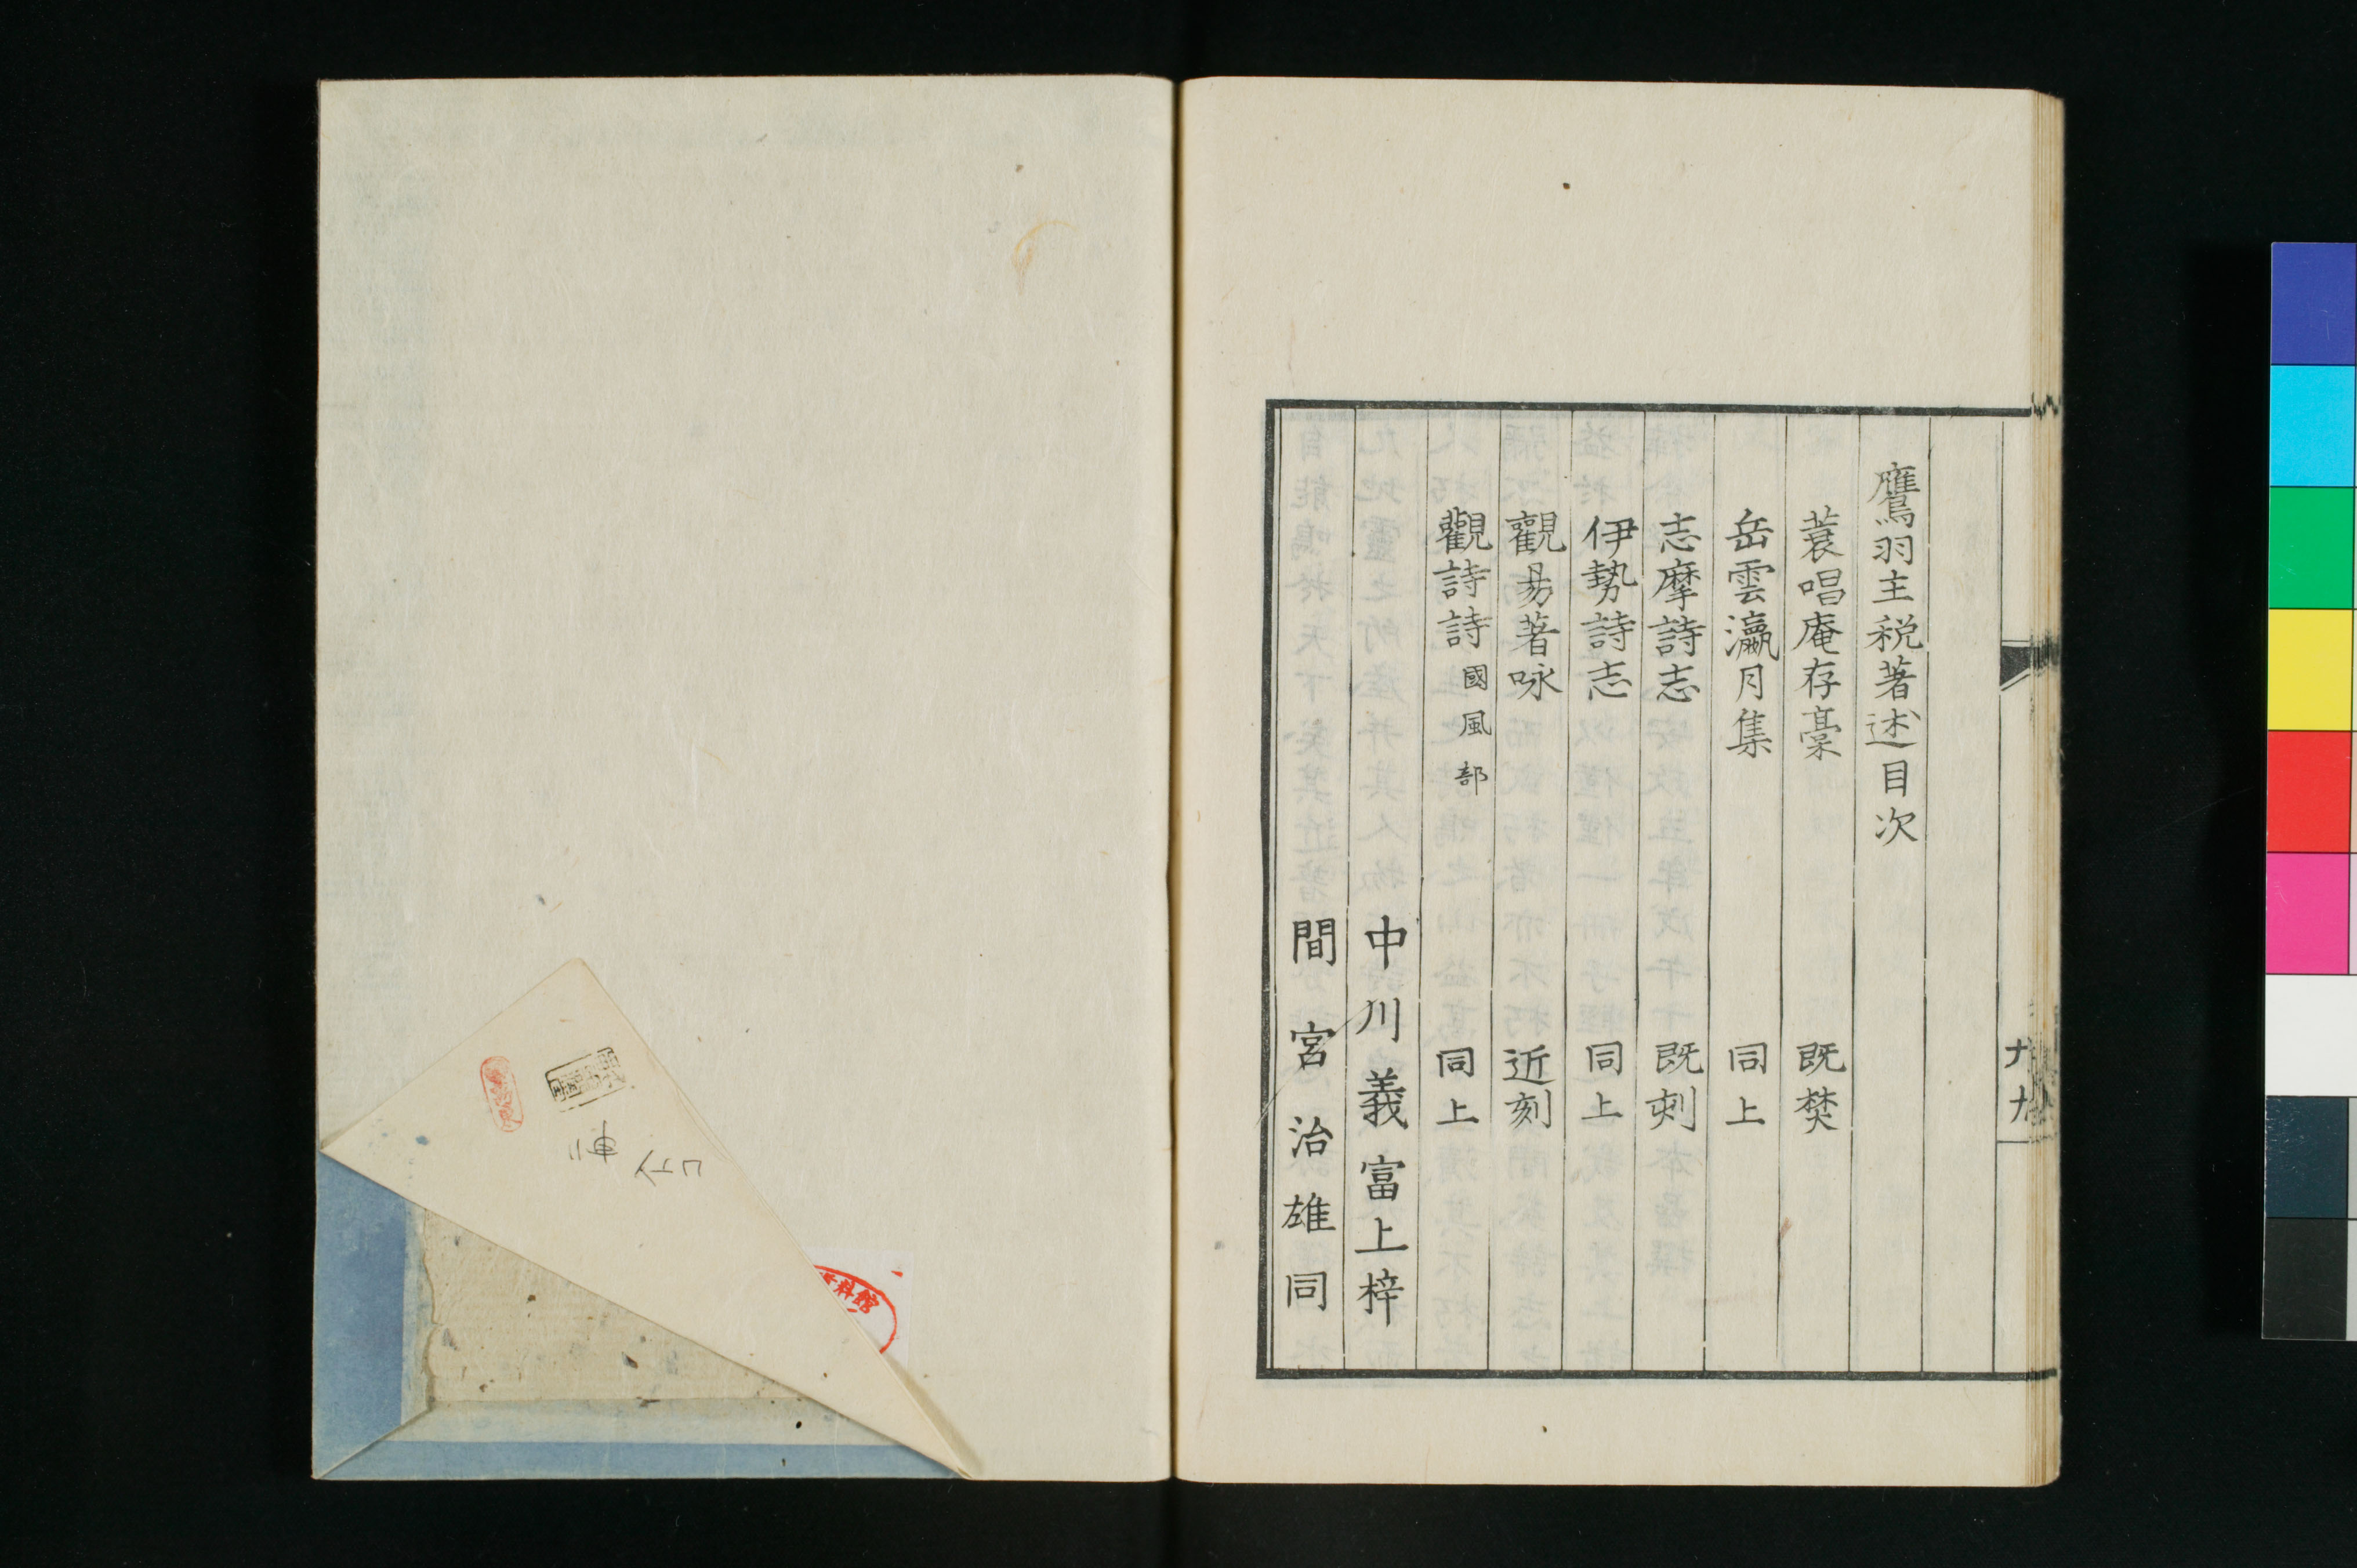 鷹羽主税著述目次
蓑唱庵存稾 既焚
岳雲瀛月集 同上
志摩詩志 既刻
伊勢詩志 同上
觀易著咏 近刻
觀詩詩 國風部 同上
中川義富上梓
間宮治雄同
料館